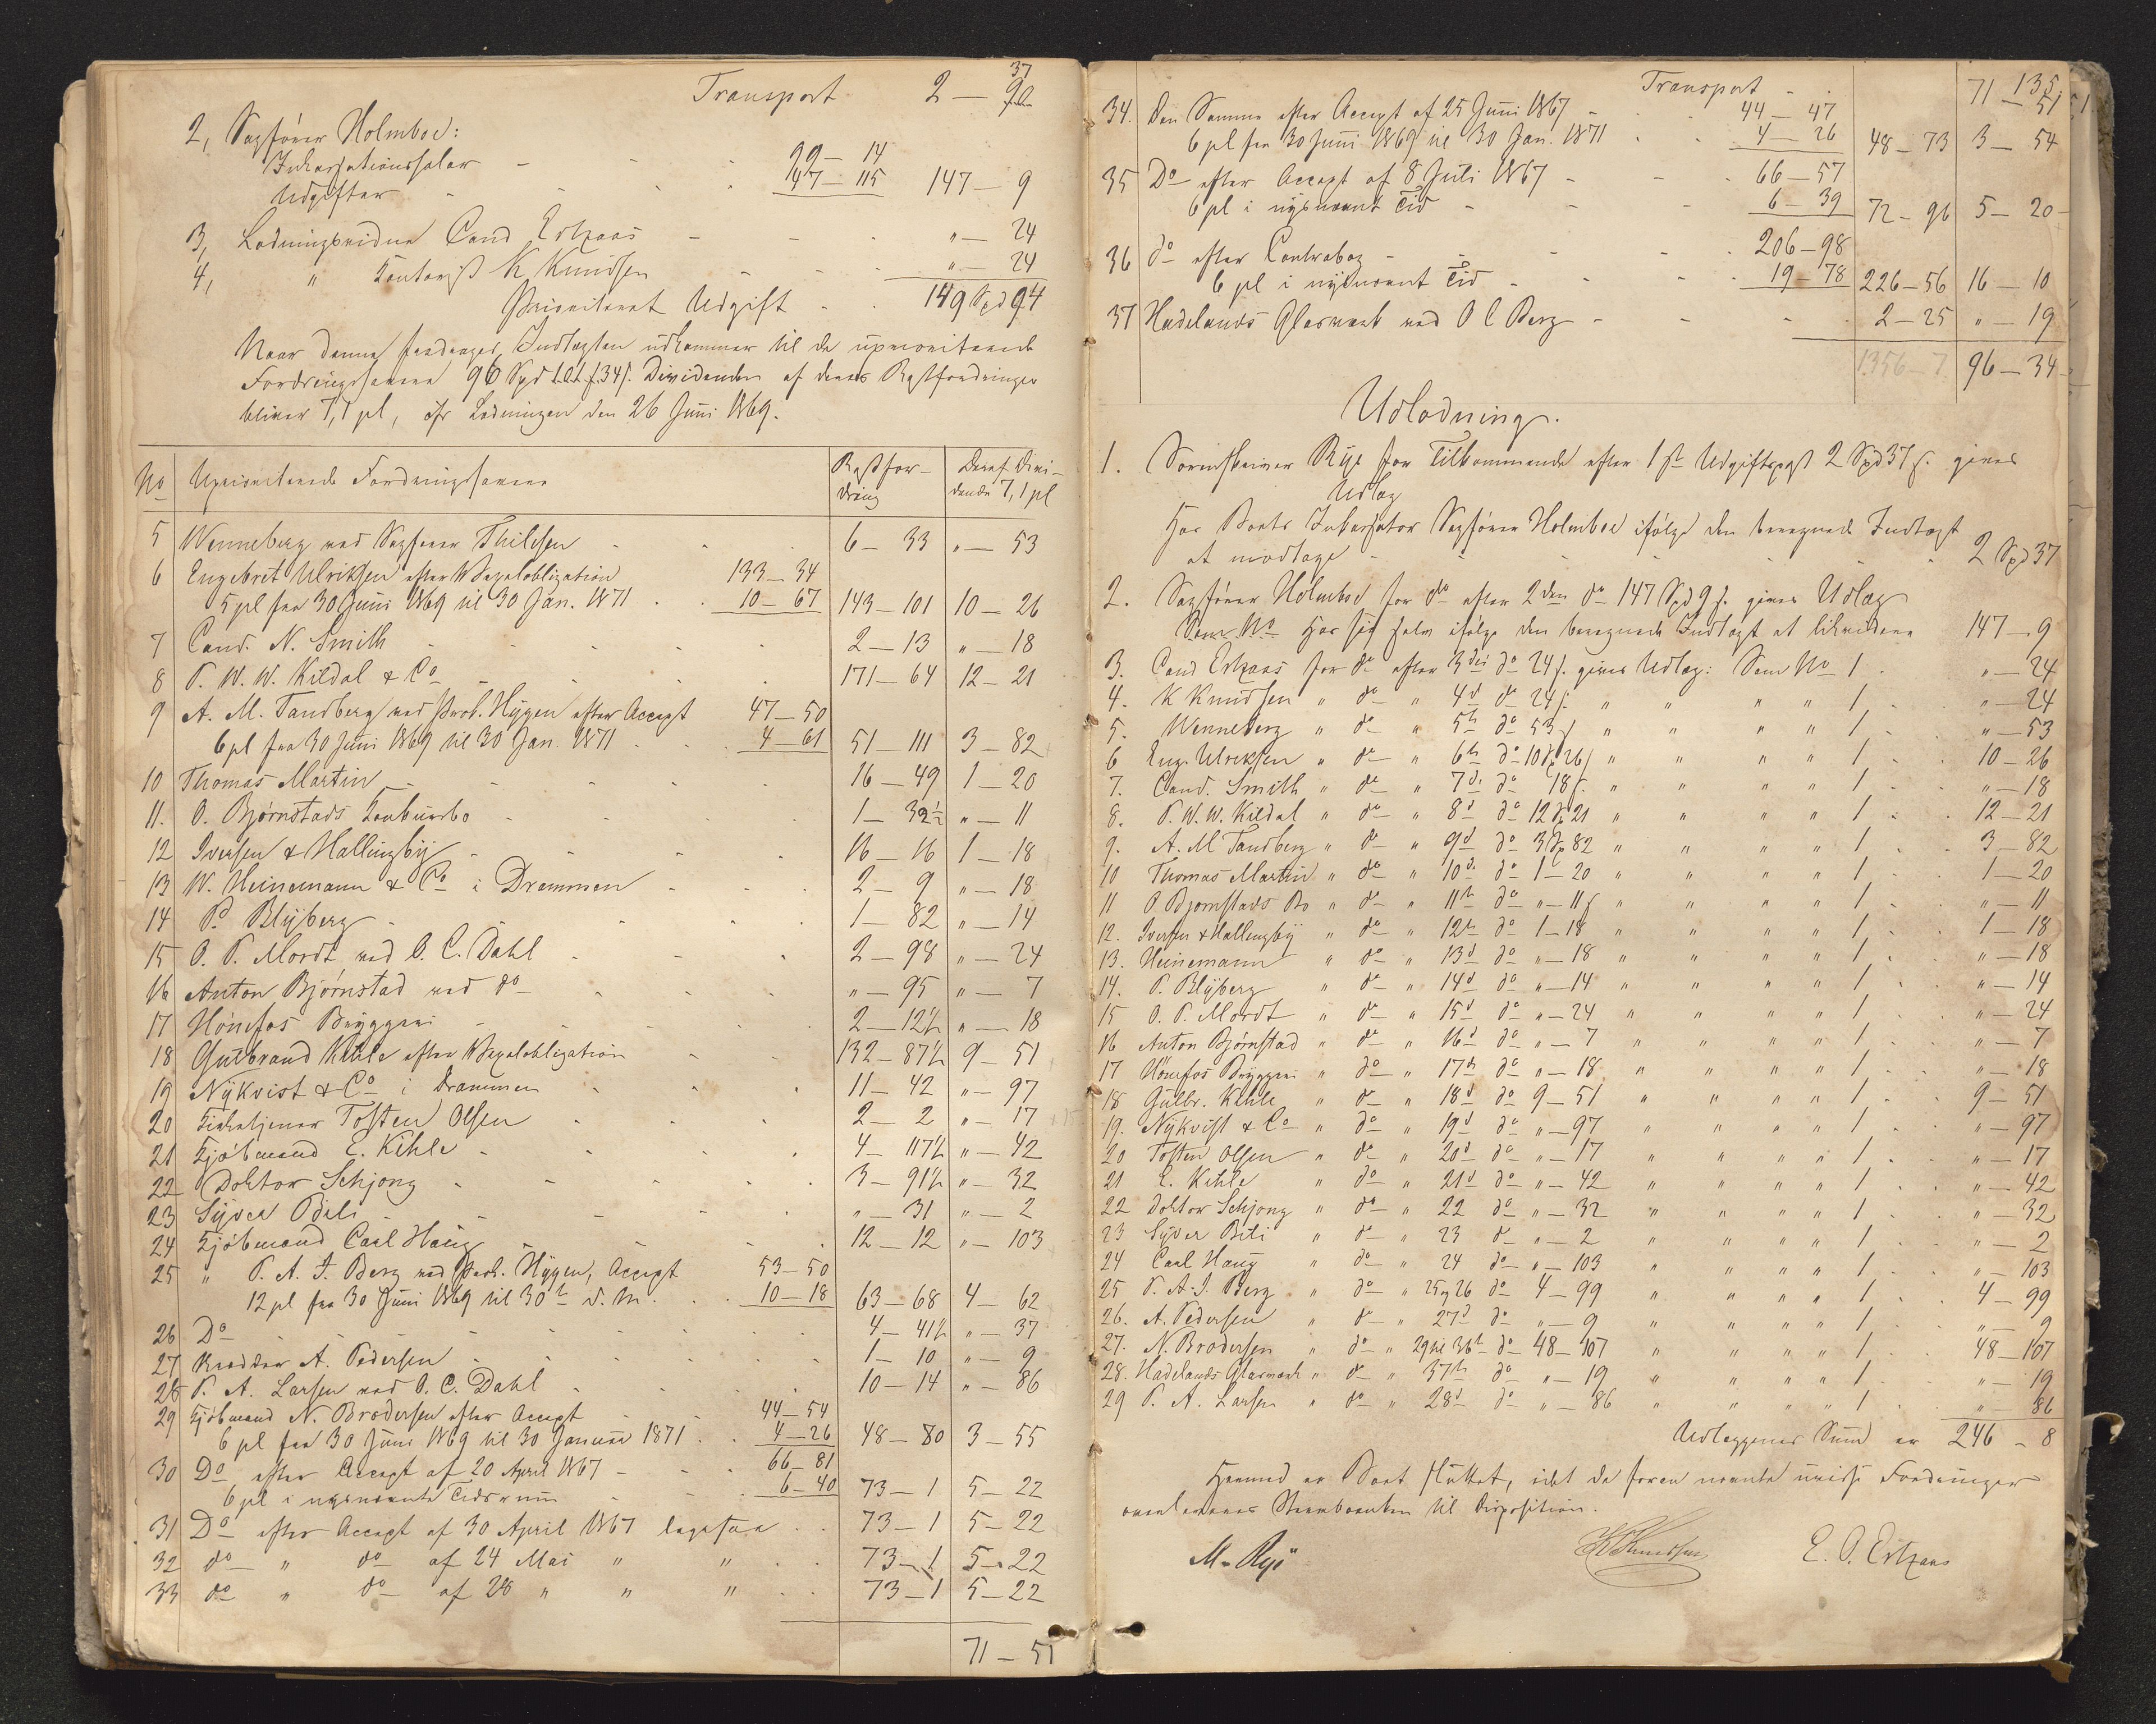 Transport 2 — 37
2, Sagfører Holmboe:
Inkassationssalær - - - 99 — 14
Udgifter - - - 47 — 115 147 — 9
3, Lodningsvidne Cand Ertzaas - - - " — 24
4, " Kontorist K Knudsen - - - " — 24
Prioriteret Udgift - - 149 Spd 94
Naar denne fradrages Indtægten udkommer til de uprioriterede
Fordringshavere 96 Spd 34 s. Dividenden af deres Restfordringer
bliver 7,1 pct, cfr Lodningen den 26 Juni 1869.
No Uprioriterede Fordringshavere Restfordring Deraf Dividende 7,1 pct
5 Wenneberg ved Sagfører Thilesen 6 — 33 " — 53
6 Engebret Ulriksen efter Vexelobligation 133 — 34
5 pct fra 30 Juni 1869 til 30 Jan. 1871 10 — 67 143 — 101 10 — 26
7 Cand. N. Smith 2 — 13 " — 18
8 P. W. W. Kildal & Co 171 — 64 12 — 21
9 A. M. Tandberg ved Prok. Hygen efter Accept 47 — 50
6 pct fra 30 Juni 1869 til 30 Jan. 1871 4 — 61 51 — 111 3 — 82
10 Thomas Martin 16 — 49 1 — 20
11. O. Bjørnstads Konkursbo 1 — 32½ " — 11
12 Iversen & Hallingby 16 — 16 1 — 18
13 W. Heinemann & Co i Drammen 2 — 9 " — 18
14 P. Blyberg 1 — 82 " — 14
15 O. P. Mordt ved O. C. Dahl 2 — 98 " — 24
16 Anton Bjørnstad ved do " — 95 " — 7
17 Hønefos Bryggeri 2 — 12½ " — 18
18 Gulbrand Kihle efter Vexelobligation 132 — 87½ 9 — 51
19 Nykvist & Co i Drammen 11 — 42 " — 97
20 Kirketjener Tosten Olsen 2 — 2 " — 17
21 Kjøbmand E. Kihle 4 — 117½ " — 42
22 Doktor Schjong 3 — 91½ " — 32
23 Syver Bili " — 31 " — 2
24 Kjøbmand Carl Haug 12 — 12 " — 103
25 " P. A. J. Berg ved Prok. Hygen, Accept 53 — 50
12 pct fra 30 Juni 1869 til 30te d. M. 10 — 18 63 — 68 4 — 62
26 Do 4 — 41½ " — 37
27 A. Pedersen 1 — 10 " — 9
28 P. A. Larsen ved O. C. Dahl 10 — 14 " — 86
29 Kjøbmand N. Brodersen efter Accept 44 — 54
6 pct fra 30 Juni 1869 til 30 Januar 1871 4 — 26 48 — 80 3 — 55
30 Do efter Accept af 20 April 1867 66 — 81
6 pct i nysnevnte Tidsrum 6 — 40 73 — 1 5 — 22
31 Do efter Accept af 30 April 1867 ligesaa 73 — 1 5 — 22
32 do " do af 24 Mai " " 73 — 1 5 — 22
33 do " do af 28 " " " 73 — 1 5 — 22
71 — 51
135.
Transport 71 — 51
34. Den Samme efter Accept af 25 Juni 1867 44 — 47
6 pct fra 30 Juni 1869 til 30 Jan. 1871 4 — 26 48 — 73 3 — 54
35 Do efter Accept af 8 Juli 1867 66 — 57
6 pct i nysnævnt Tid 6 — 39 72 — 96 5 — 20
36 do efter Contrabog 206 — 98
6 pct i nysnævnt Tid 19 — 78 226 — 56 16 — 10
37 Hadelands Glasværk ved O C Berg 2 — 25 " — 19
1356 — 7 96 — 34
Udlodning.
1. Sorenskriver Rye for Tilkommende efter 1ste Udgiftspost 2 Spd 37 s. gives
Udlæg
Hos Boets Inkassator Sagfører Holmboe ifølge den beregnede Indtægt
at modtage 2 Spd 37
2. Sagfører Holmboe for do efter 2den do 147 Spd 9 s. gives Udlæg
Hos sig selv ifølge den beregnede Indtægt at likvidere 147 — 9
3. Cand Ertzaas for do efter 3die do 24 s. gives Udlæg: Som No 1 " — 24
4. K Knudsen " do " 4d do 24 s. " " " " 1 " — 24
5. Wenneberg " do " 5te do 53 s " " " " 1 " — 53
6 Eng. Ulriksen " do " 6te do 10 Sp 26 s " " " " 1 10 — 26
7. Cand. Smith " do " 7d do 18 s. " " " " 1 " — 18
8. P. W. W. Kildal " do " 8d do 12 Sp 21 " " " " 1 12 — 21
9. A. M Tandberg " do " 9d do 3 Sp 82 " " " " 1 3 — 82
10 Thomas Martin " do " 10d do 1 — 20 " " " " 1 1 — 20
11 O Bjørnstads Bo " do " 11te do " — 11 s " " " " 1 " — 11
12. Iversen & Hallingby " do " 12te do 1 — 18 " " " " 1 1 — 18
13. Heinemann " do " 13d do " — 18 " " " " 1 " — 18
14. P. Blyberg " do " 14d do " — 14 " " " " 1 " — 14
15 O. P. Mordt " do " 15d do " — 24 " " " " 1 " — 24
16 Anton Bjørnstad " do " 16d do " — 7 " " " " 1 " — 7
17 Hønefos Bryggeri " do " 17de do " — 18 " " " " 1 " — 18
18 Gulbr. Kihle " do " 18d do 9 — 51 " " " " 1 9 — 51
19. Nykvist & Co " do " 19d do " — 97 " " " " 1 " — 97
20 Tosten Olsen " do " 20d do " — 17 " " " " 1 " — 17
21 E. Kihle " do " 21d do " — 42 " " " " 1 " — 42
22 Doktor Schjong " do " 22 do " — 32 " " " " 1 " — 32
23 Syver Bili " do " 23 do " — 2 " " " " 1 " — 2
24 Carl Haug " do " 24 do " — 103 " " " " 1 " — 103
25 P. A. J. Berg " do " 25 og 26 do 4 — 99 " " " " 1 4 — 99
26. A. Pedersen " do " 27d do " — 9 " " " " 1 " — 9
27. N. Brodersen " do " 29 til 36te do 48 — 107 " " " " 1 48 — 107
28. Hadelands Glasværk " do " 37te do " — 19 " " " " 1 " — 19
29 P. A. Larsen " do " 28d do " — 86 " " " " 1 " — 86
Udlæggenes Sum er 246 — 8
Hermed er Boet sluttet, idet de foran nævnte uvisse Fordringer
overlades til Disposition.
M. Rye K Knudsen E. O. Ertzaas